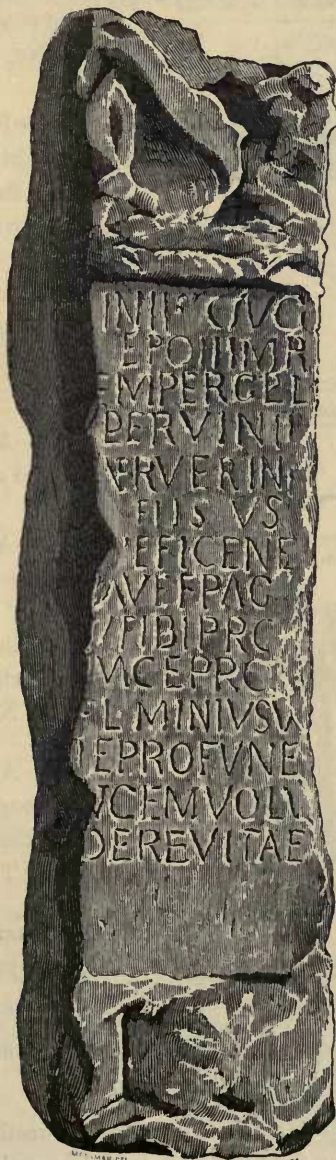 EPOIIIMR
EMPERGEL
PERVINII
VERVERIN
FIIS VS
EFICENE
AVEFPAG
VFIBIPRC
VICEPRC
EL MINIVSV
EPROFVNE
VCEMVOLV
DEREVITAE